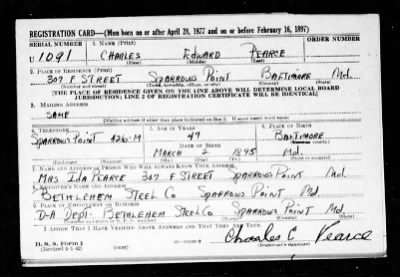 REGISTRATION CARD—(Men born on or after April 28, 1877 and on or before February 16, 1897)
SERIAL NUMBER 1. NAME (Print) ORDER NUMBER
U 1091 CHARLES EDWARD PEARCE
(First) (Middle) (Last)
2. PLACE OF RESIDENCE (Print)
307 F STREET SPARROWS POINT BALTIMORE Md.
(Number and street) (Town, township, village, or city) (County) (State)
[THE PLACE OF RESIDENCE GIVEN ON THE LINE ABOVE WILL DETERMINE LOCAL BOARD
JURISDICTION; LINE 2 OF REGISTRATION CERTIFICATE WILL BE IDENTICAL]
3. MAILING ADDRESS
SAME
[Mailing address if other than place indicated on line 2. If same insert word same]
4. TELEPHONE 5. AGE IN YEARS 6. PLACE OF BIRTH
SPARROWS POINT 426-M 47 BALTIMORE
DATE OF BIRTH (Town or county)
MARCH 2 1895 Md.
(Exchange) (Number) (Mo.) (Day) (Yr.) (State or country)
7. NAME AND ADDRESS OF PERSON WHO WILL ALWAYS KNOW YOUR ADDRESS
MRS IDA PEARCE 307 F STREET SPARROWS POINT Md.
8. EMPLOYER'S NAME AND ADDRESS
BETHLEHEM STEEL CO SPARROWS POINT Md.
9. PLACE OF EMPLOYMENT OR BUSINESS
DEPT- BETHLEHEM STEEL CO SPARROWS POINT Md.
I AFFIRM THAT I HAVE VERIFIED ABOVE ANSWERS AND THAT THEY ARE TRUE.
D. S. S. Form 1
(Revised 4-1-42)
Charles E. Pearce
(Registrant's signature)